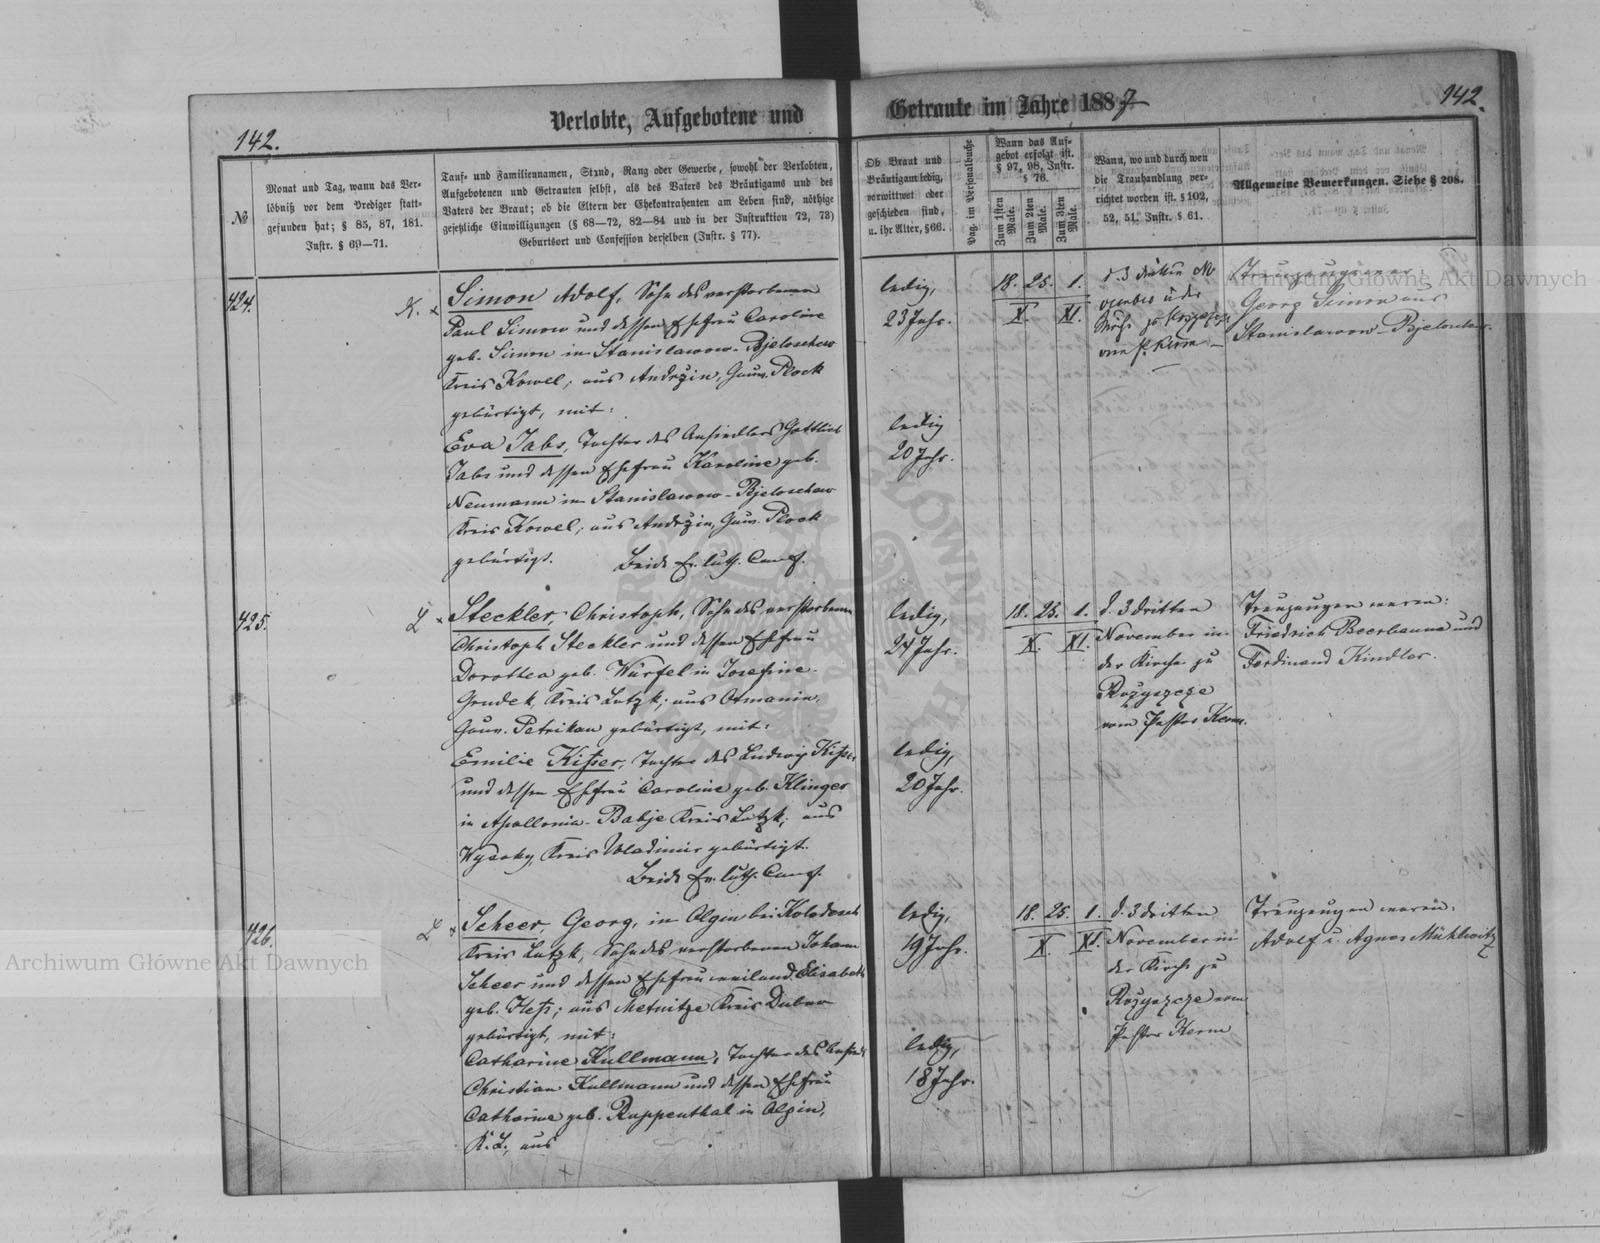 142.
Verlobte, Aufgebotene und
Getraute im Jahre 1887
142.
№
Monat und Tag, wann das Ver-
löbniß vor dem Prediger statt-
gefunden hat; § 85, 87, 181.
Instr. § 69—71.
Tauf- und Familiennamen, Stand, Rang oder Gewerbe, sowohl der Verlobten,
Aufgebotenen und Getrauten selbst, als des Vaters des Bräutigams und des
Vaters der Braut; ob die Eltern der Ehekontrahenten am Leben sind, nöthige
gesetzliche Einwilligungen (§ 68—72, 82—84 und in der Instruktion 72, 73)
Geburtsort und Confession derselben (Instr. § 77).
Ob Braut und
Bräutigam ledig,
verwittwet oder
geschieden sind,
u. ihr Alter, § 66.
Pag. im Personalbuche
Wann das Auf-
gebot erfolgt ist.
§ 97, 98, Instr.
§ 76.
Zum 1sten Male.
Zum 2ten Male.
Zum 3ten Male.
Wann, wo und durch wen
die Trauhandlung ver-
richtet worden ist. § 102,
52, 51. Instr. § 61.
Allgemeine Bemerkungen. Siehe § 208.
424.
K. x
Simon Adolf, Sohn des verstorbenen
Paul Simon und dessen Ehefrau Caroline
geb. Simon in Stanislawow-Bjeloschew
Kreis Kowel; aus Andrzin, Gouv. Plock
gebürtigt, mit:
Eva Jabs, Tochter des Ansiedlers Gottlieb
Jabs und dessen Ehefrau Karoline geb.
Neumann in Stanislawow-Bjeloschew
Kreis Kowel; aus Andrzin, Gouv. Plock
gebürtigt. Beide Ev. luth. Conf.
ledig,
23 Jahr.
ledig
20 Jahr.
18. 25. 1.
X. XI.
d. 3 dritten No
vember in der
Kirche zu
vom P. Kerm
Trauzeugen waren:
Georg Simon aus
Stanislawow-
425.
L x
Steckler, Christoph, Sohn des verstorbenen
Christoph Steckler und dessen Ehefrau
Dorothea geb. Würfel in Josefine-
Grudek, Kreis Lutzk; aus Osmanin,
Gouv. Petrikau gebürtigt, mit:
Emilie Kißer, Tochter des Ludwig Kißer
und dessen Ehefrau Caroline geb. Klinger
in Apollonia-Babje Kreis Lutzk; aus
Wysoky, Kreis Wladimir gebürtigt.
Beide Ev. luth. Conf.
ledig,
24 Jahr.
ledig,
20 Jahr.
18. 25. 1.
X. XI.
d. 3 dritten
November in
der Kirche zu
Rożyszcze
vom Pastor Kerm.
Trauzeugen waren:
Friedrich Beerbaum und
Ferdinand Kindler.
426.
L x
Scheer, Georg, in Olgin bei
Kreis Lutzk, Sohn des verstorbenen Johann
Scheer und dessen Ehefrau weiland Elisabeth
geb. Heß; aus Metnitze Kreis Dubno
gebürtigt, mit:
Catharine Kullmann, Tochter des
Christian Kullmann und dessen Ehefrau
Catharine geb. Ruppenthal in Olgin,
K. L., aus
ledig,
19 Jahr.
ledig,
18 Jahr.
18. 25. 1.
X. XI.
d. 3 dritten
November in
der Kirche zu
Rożyszcze vom
Pastor Kerm
Trauzeugen waren:
Adolf u. Agnes Mühlwitz
Archiwum Główne Akt Dawnych
Archiwum Główne Akt Dawnych